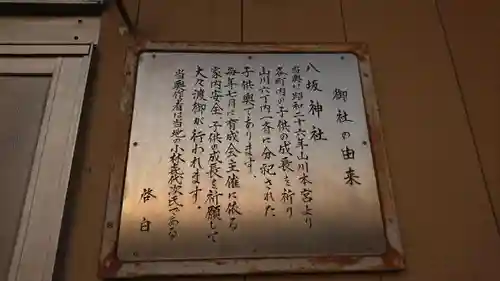 御社の由来
八坂神社
当輿は昭和二十六年山川本宮より
各町内の子供の成長を祈り
山川六丁内一斉に分祀された
子供輿であります。
毎年七月に育成会主催に依る
家内安全、子供の成長を祈願して
大々渡御が行われます。
当輿作者は当地の小林長次氏である
啓白